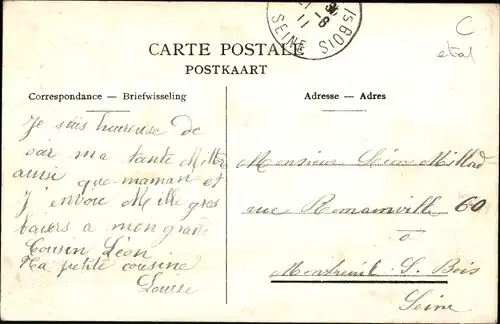 C
etal
21 - 8
11
S BOIS
SEINE
CARTE POSTALE
POSTKAART
Correspondance — Briefwisseling
Adresse — Adres
Je suis heureuse de
voir ma tante
ainsi que maman et
J'envoie Mille gros
baisers a mon grand
Cousin Léon
Ta petite cousine
Louise
Monsieur Léon
rue Romainville 60
à
Montreuil S. Bois
Seine